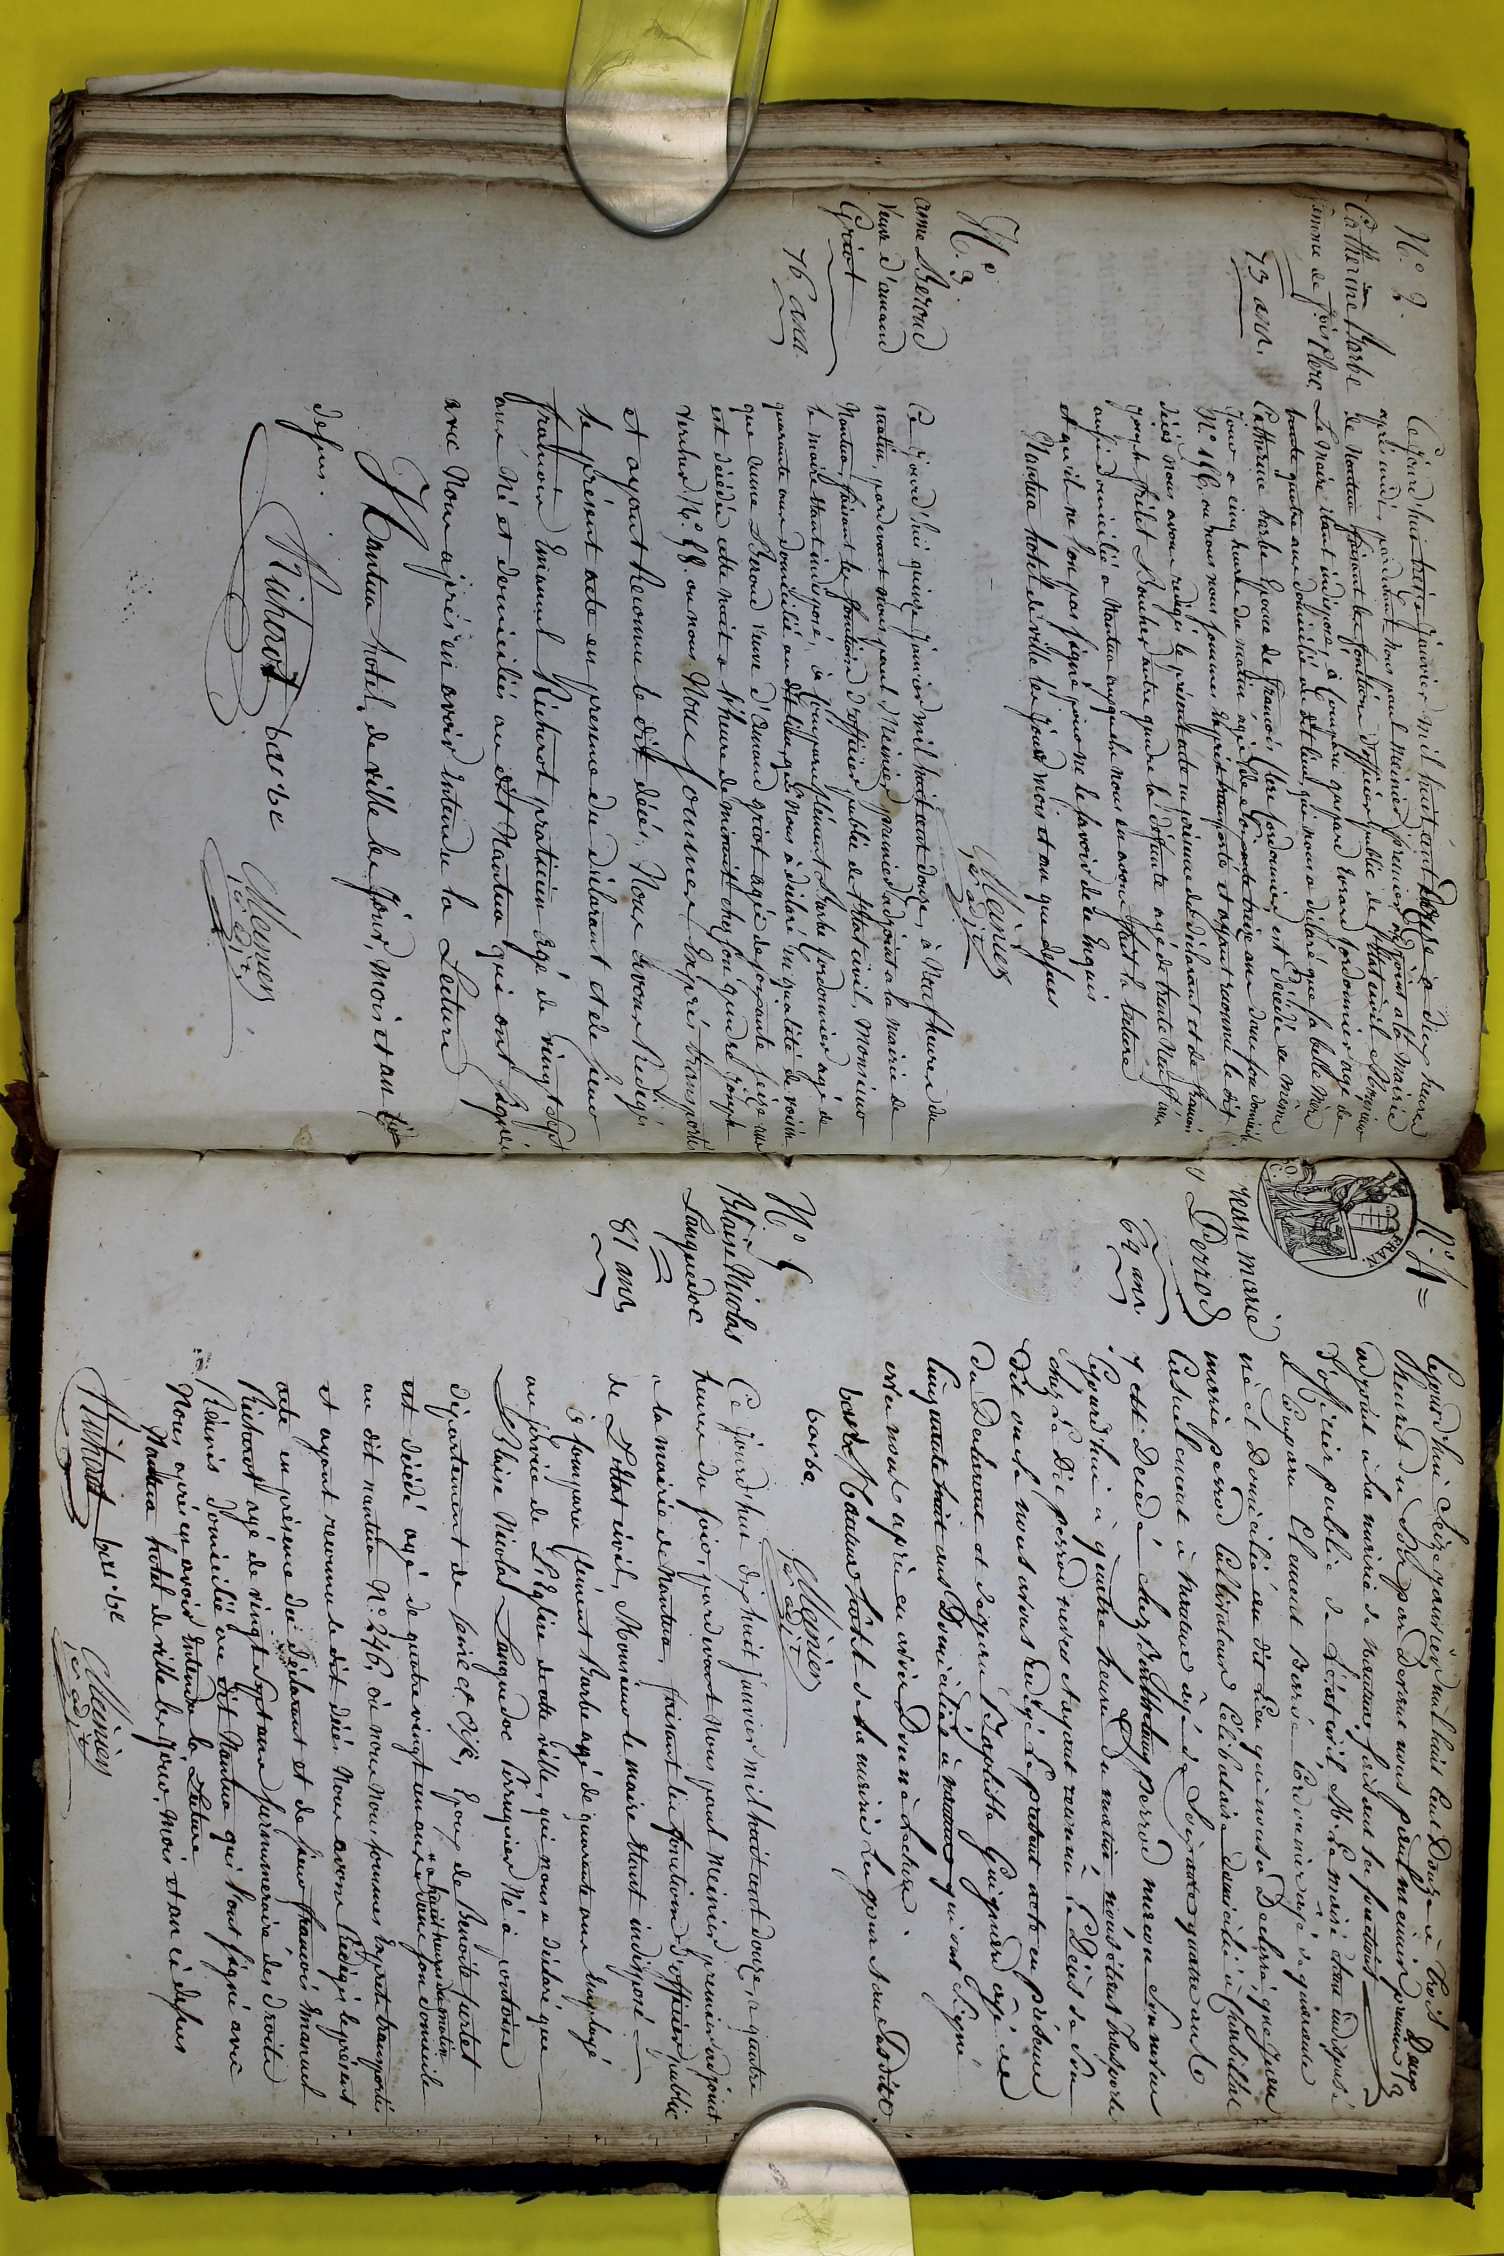 N.° 2.
Catherine Barbe
femme de fois Clerc
73 ans.
Ce jourd'huit treize janvier mil huit cent douze a dix heures
après midi, pardevant nous paul meinier premier adjoint a la Mairie
de Nantua faisant les fonctions d'officier public de l'Etat civil, Monsieur
Le Maire étant indisposé, à Comparu gaspard cordonnier agé de
trente quatre ans domicilié au dit lieu, qui nous a déclaré que sa belle Mère
Catherine barbe Epouse de francois Clerc Cordonnier est décédée ce même
jour a cinq heures du matin agée de soixante treize ans dans son domicile
N.° 186. ou nous nous sommes exprès transporté et ayant reconnu le dit
décès nous avons rédigés le présent acte en présence du déclarant et de francois
joseph Bouches autre gendre de la défunte agé de trente neuf ans
aussi domicilié a Nantua auxquels nous en avons fait la lecture
et qu'il ne l'on pas signé pour ne le savoir de ce Enquis
Nantua hotel de ville les jour mois et an que dessus
Meinier
per adjt
N.° 3.
anne Beroud
Veuve d'amand
Griot
76 ans
Ce jourd'hui quinze janvier mil huit cent douze, à Neuf heures du
matin, pardevant nous paul Meinier premier adjoint a la mairie de
Nantua, faisant les fonctions d'officier public de l'Etat civil, Monsieur
le maire étant indisposé, a Comparu Clément Barbe Cordonnier agé de
quarante ans domicilié au dit lieu, qui Nous à déclaré en qualité de voisin
que anne Beroud veuve d'Amand griot agée de soixante seize ans
est décédée cette nuit a l'heure de minuit chez son gendre joseph
Verchere N.° 58. ou nous Nous sommes Exprès transportés
et ayant Reconnu le dit décès, Nous avons Rédigé
le présent acte en présence du déclarant et de sieur
francois Emanuel Richerot praticien agé de vingt sept
ans Né et domiciliés au dit Nantua qui ont signés
avec Nous après en avoir entendu la Lecture
A Nantua hotel de ville les jour, mois et an ci
dessus.
Richerot barbe Meinier
per adjt
N.° 4
Jean marie
Perrod
64 ans.
Cejourd'hui Seize janvier mil huit Cent Douze à trois
heures du Soir par Devant nous paul meinier premier
adjoint à la mairie de nantua faisant les fonctions
d'officier public de L'état civil M. Le maire étant indisposé
à Comparu Clement Barbe Cordonnier agé de quarante
né et Domicilié au dit Lieu qui nous a Declaré que jean
marie perrod Cultivateur Célibataire domicilié à
Casuellement à nantua âgé de Soixante quatre ans
y est Decedé chez perrod neveu
Cejourd'hui à quatre heures du matin nous étant transporté
chez Le Dit perrod neveu et ayant reconnu Le Décès de Son
Dit oncle nous avons redigé Le présent acte en présence
du Déclarant et de jean Baptiste Guignard âgé de
Cinquante huit ans Domiciliés à nantua qui ont Signé
avec nous après en avoir Donné Lecture
Nantua hôtel de la mairie Les jour et an susdits.
barbe.
Meinier
per adjt
N.° 5
Blaise Nicolas
Languedoc
81 ans
Ce jourd'hui dixhuit janvier mil huit cent douze, a quatre
heures du soir, pardevant Nous paul Meinier premier adjoint
a la mairie de Nantua, faisant les fonctions d'officier public
de l'Etat civil, Monsieur le maire étant indisposé
à Comparu Clément Barbe agé de quarante ans employé
au service de L'Eglise de cette ville, qui nous a déclaré que
Blaise Nicolas Languedoc Perruquier Né à pontoise
département de seine et Oise, Epoux de Benoite
est décédé agé de quatre vingt un ans a huit heures du matin dans son domicile
au dit nantua N.° 246, où nous nous sommes Exprès transportés
et ayant reconnu le dit décès Nous avons Rédigé le présent
acte en présence du déclarant et de sieur francois Emanuel
Richerot agé de vingt sept ans surnumeraire des droits
Réunis domicilié au dit Nantua qui l'ont signé avec
Nous après en avoir Entendu la Lecture
Nantua hotel de ville les jour, mois et an ci dessus
Richerot barbe Meinier
per adjt